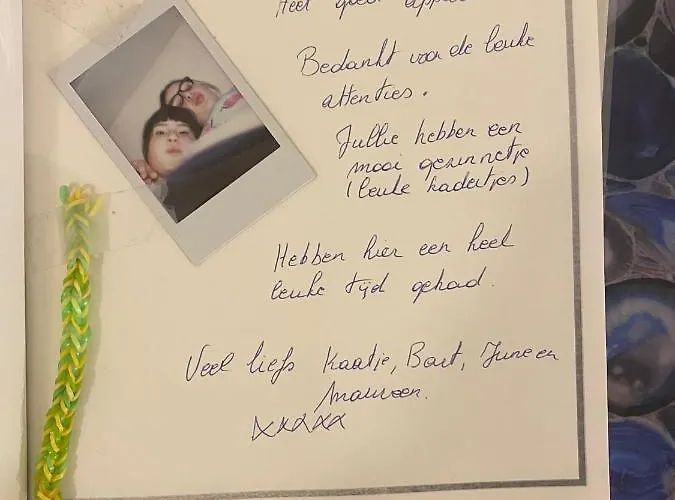 Heel
Bedankt voor de leuke
attenties.
Jullie hebben een
mooi gezinnetje
(leuke kadertjes)
Hebben hier een heel
leuke tijd gehad.
Veel liefs Kaatje, Bart, June en
Maureen.
xxxxx